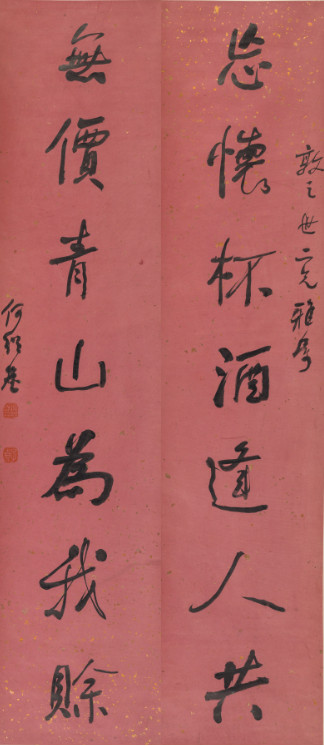 敦之世二兄雅屬
忘懷杯酒逢人共
無價青山為我賒
何紹基